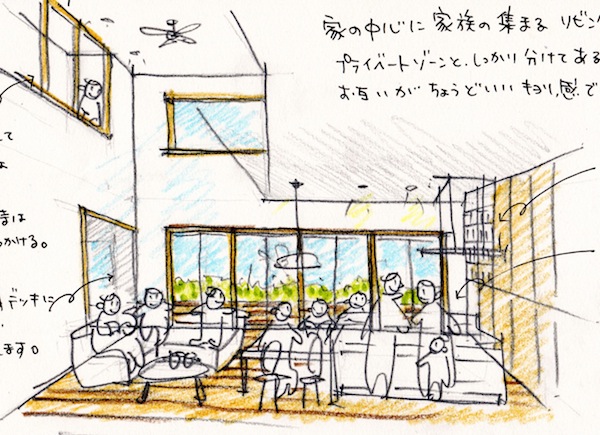 家の中心に家族の集まるリビン
プライベートゾーンと、しっかり分けてある
お互いがちょうどいいキョリ感で
して
は
かける。
デッキに
ます。